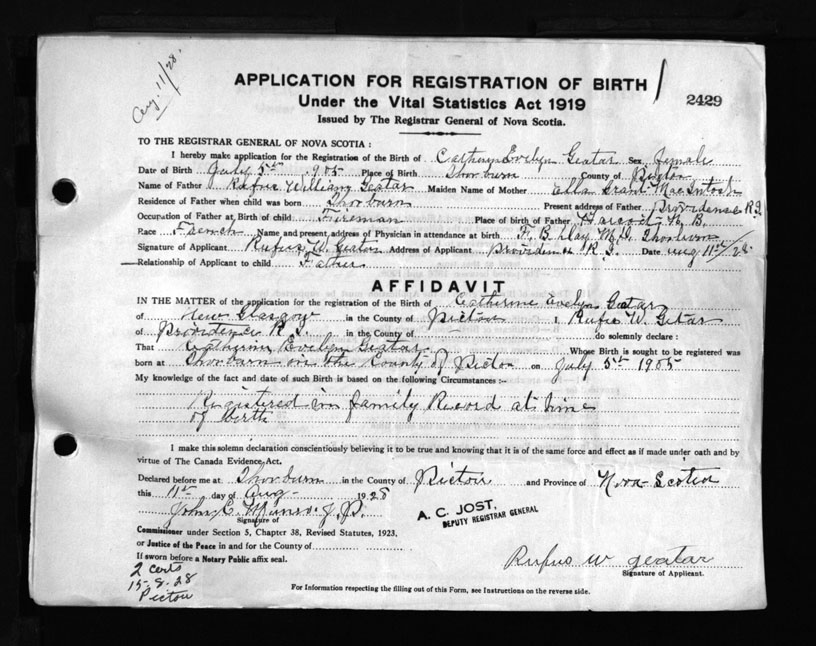 Aug. 11/28.
APPLICATION FOR REGISTRATION OF BIRTH
Under the Vital Statistics Act 1919
2429
Issued by The Registrar General of Nova Scotia.
TO THE REGISTRAR GENERAL OF NOVA SCOTIA :
I hereby make application for the Registration of the Birth of Catheryn Evelyn Geatar Sex female
Date of Birth July 5st 1905 Place of Birth Thorburn County of Picton
Name of Father Rufus William Geatar Maiden Name of Mother Ella Grant MacIntosh
Residence of Father when child was born Thorburn Present address of Father Providense R.I.
Occupation of Father at Birth of child Fireman Place of birth of Father Harcord N. B.
Race French Name and present address of Physician in attendance at birth F. B. Day M.D. Thorburn
Signature of Applicant Rufus W. Geatar Address of Applicant Providence R.I. Date Aug 11st/28
Relationship of Applicant to child Father
AFFIDAVIT
IN THE MATTER of the application for the registration of the Birth of Catherine Evelyn Geatar
of New Glasgow in the County of Pictou I, Rufus W. Getar
of Providence R.I. in the County of — do solemnly declare :
That Catherin Evelyn Geatar Whose Birth is sought to be registered was
born at Thorburn in the County of Picton on July 5st 1905
My knowledge of the fact and date of such Birth is based on the following Circumstances :-
Registered in family Record at time
of birth
I make this solemn declaration conscientiously believing it to be true and knowing that it is of the same force and effect as if made under oath and by
virtue of The Canada Evidence Act.
Declared before me at Thorburn in the County of Pictou and Province of Nova Scotia
this 11st day of Aug- 1928
John C. Munro J.P.
Signature of
A. C. JOST,
DEPUTY REGISTRAR GENERAL
Commissioner under Section 5, Chapter 38, Revised Statutes, 1923,
or Justice of the Peace in and for the County of
If sworn before a Notary Public affix seal.
Rufus W geatar
Signature of Applicant.
2 certs
15-8-28
Pictou
For Information respecting the filling out of this Form, see Instructions on the reverse side.